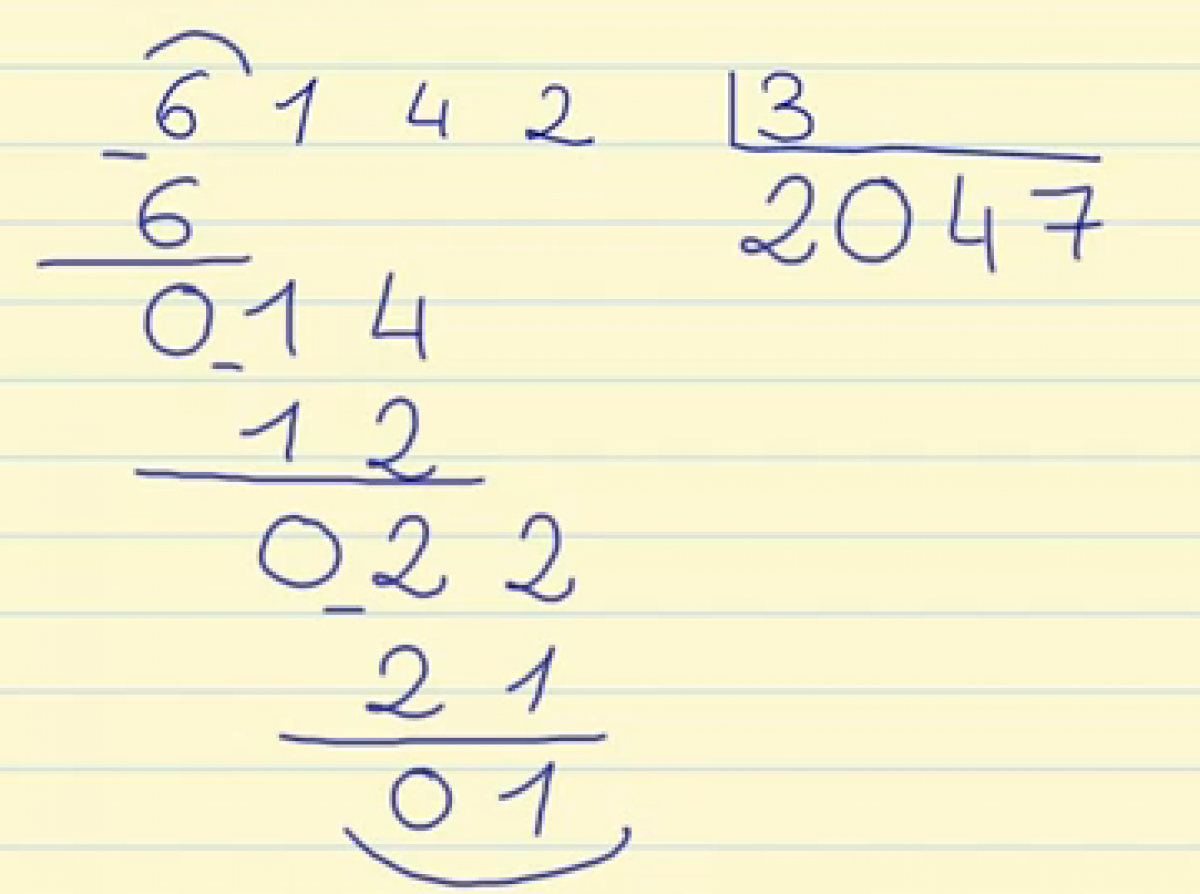 6142 3
6 2047
014
12
022
21
01